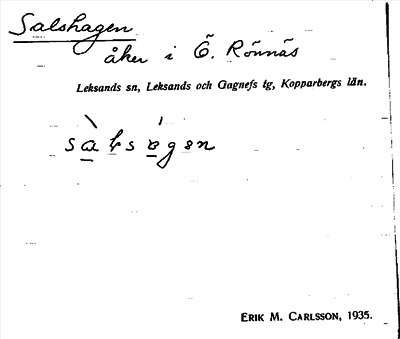 Salshagen
åker i Ö. Rönnäs
Leksands sn, Leksands och Gagnefs tg, Kopparbergs län.
ERIK M. CARLSSON, 1935.